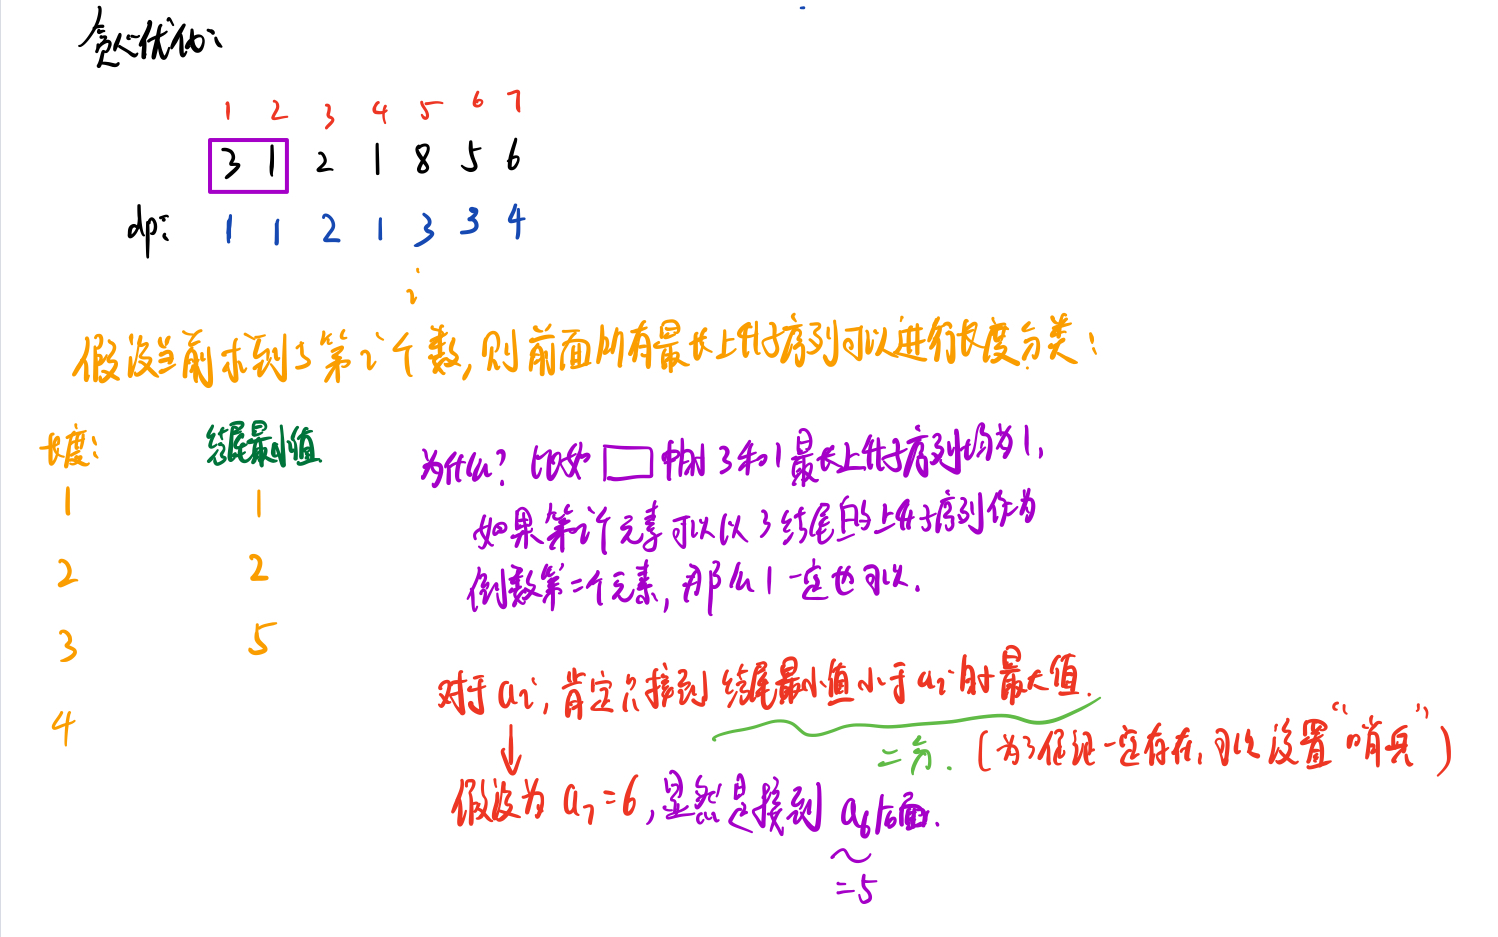 贪心优化:
1 2 3 4 5 6 7
3 1 2 1 8 5 6
dp: 1 1 2 1 3 3 4
i
假设当前求到了第i个数,则前面所有最长上升子序列可以进行长度分类:
长度: 结尾最小值
1 1
2 2
3 5
4
为什么? 比如 中的3和1最长上升子序列均为1,
如果第i个元素可以以3结尾的上升子序列作为
倒数第二个元素,那么1一定也可以.
对于ai,肯定只接到结尾最小值小于ai的最大值.
二分.
(为了保证一定存在,可以设置“哨兵”)
↓
假设为a7=6,显然是接到a6后面.
=5